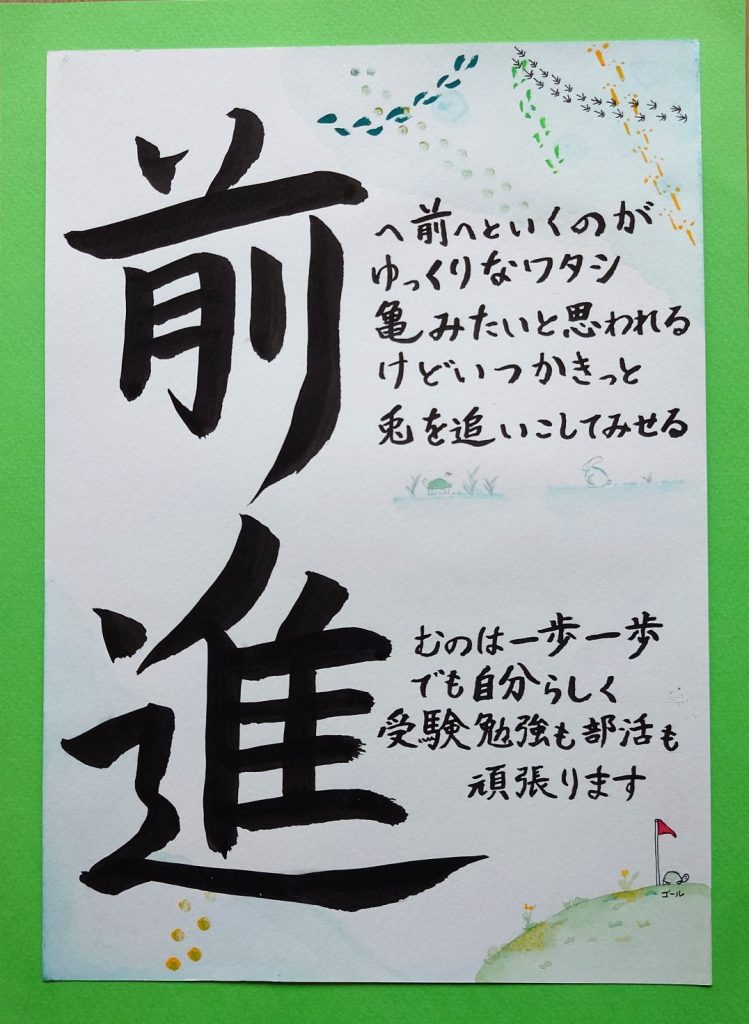 前
へ前へといくのが
ゆっくりなワタシ
亀みたいと思われる
けどいつかきっと
兎を追いこしてみせる
進
むのは一歩一歩
でも自分らしく
受験勉強も部活も
頑張ります
ゴール